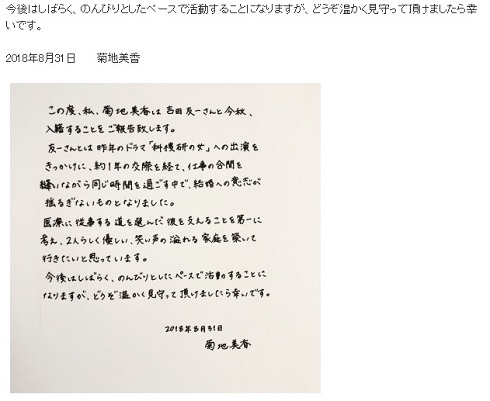 今後はしばらく、のんびりとしたペースで活動することになりますが、どうぞ温かく見守って頂けましたら幸
いです。
2018年8月31日　　菊地美香
この度、私、菊地美香は吉田友一さんと今秋、
入籍することをご報告致します。
友一さんとは昨年のドラマ「科捜研の女」への出演を
きっかけに、約1年の交際を経て、仕事の合間を
縫いながら同じ時間を過ごす中で、結婚への意志が
揺るぎないものとなりました。
医療に従事する道を選んだ彼を支えることを第一に
考え、2人らしく優しい、笑い声の溢れる家庭を築いて
行きたいと思っています。
今後はしばらく、のんびりとしたペースで活動することに
なりますが、どうぞ温かく見守って頂けましたら幸いです。
2018年8月31日
菊地美香